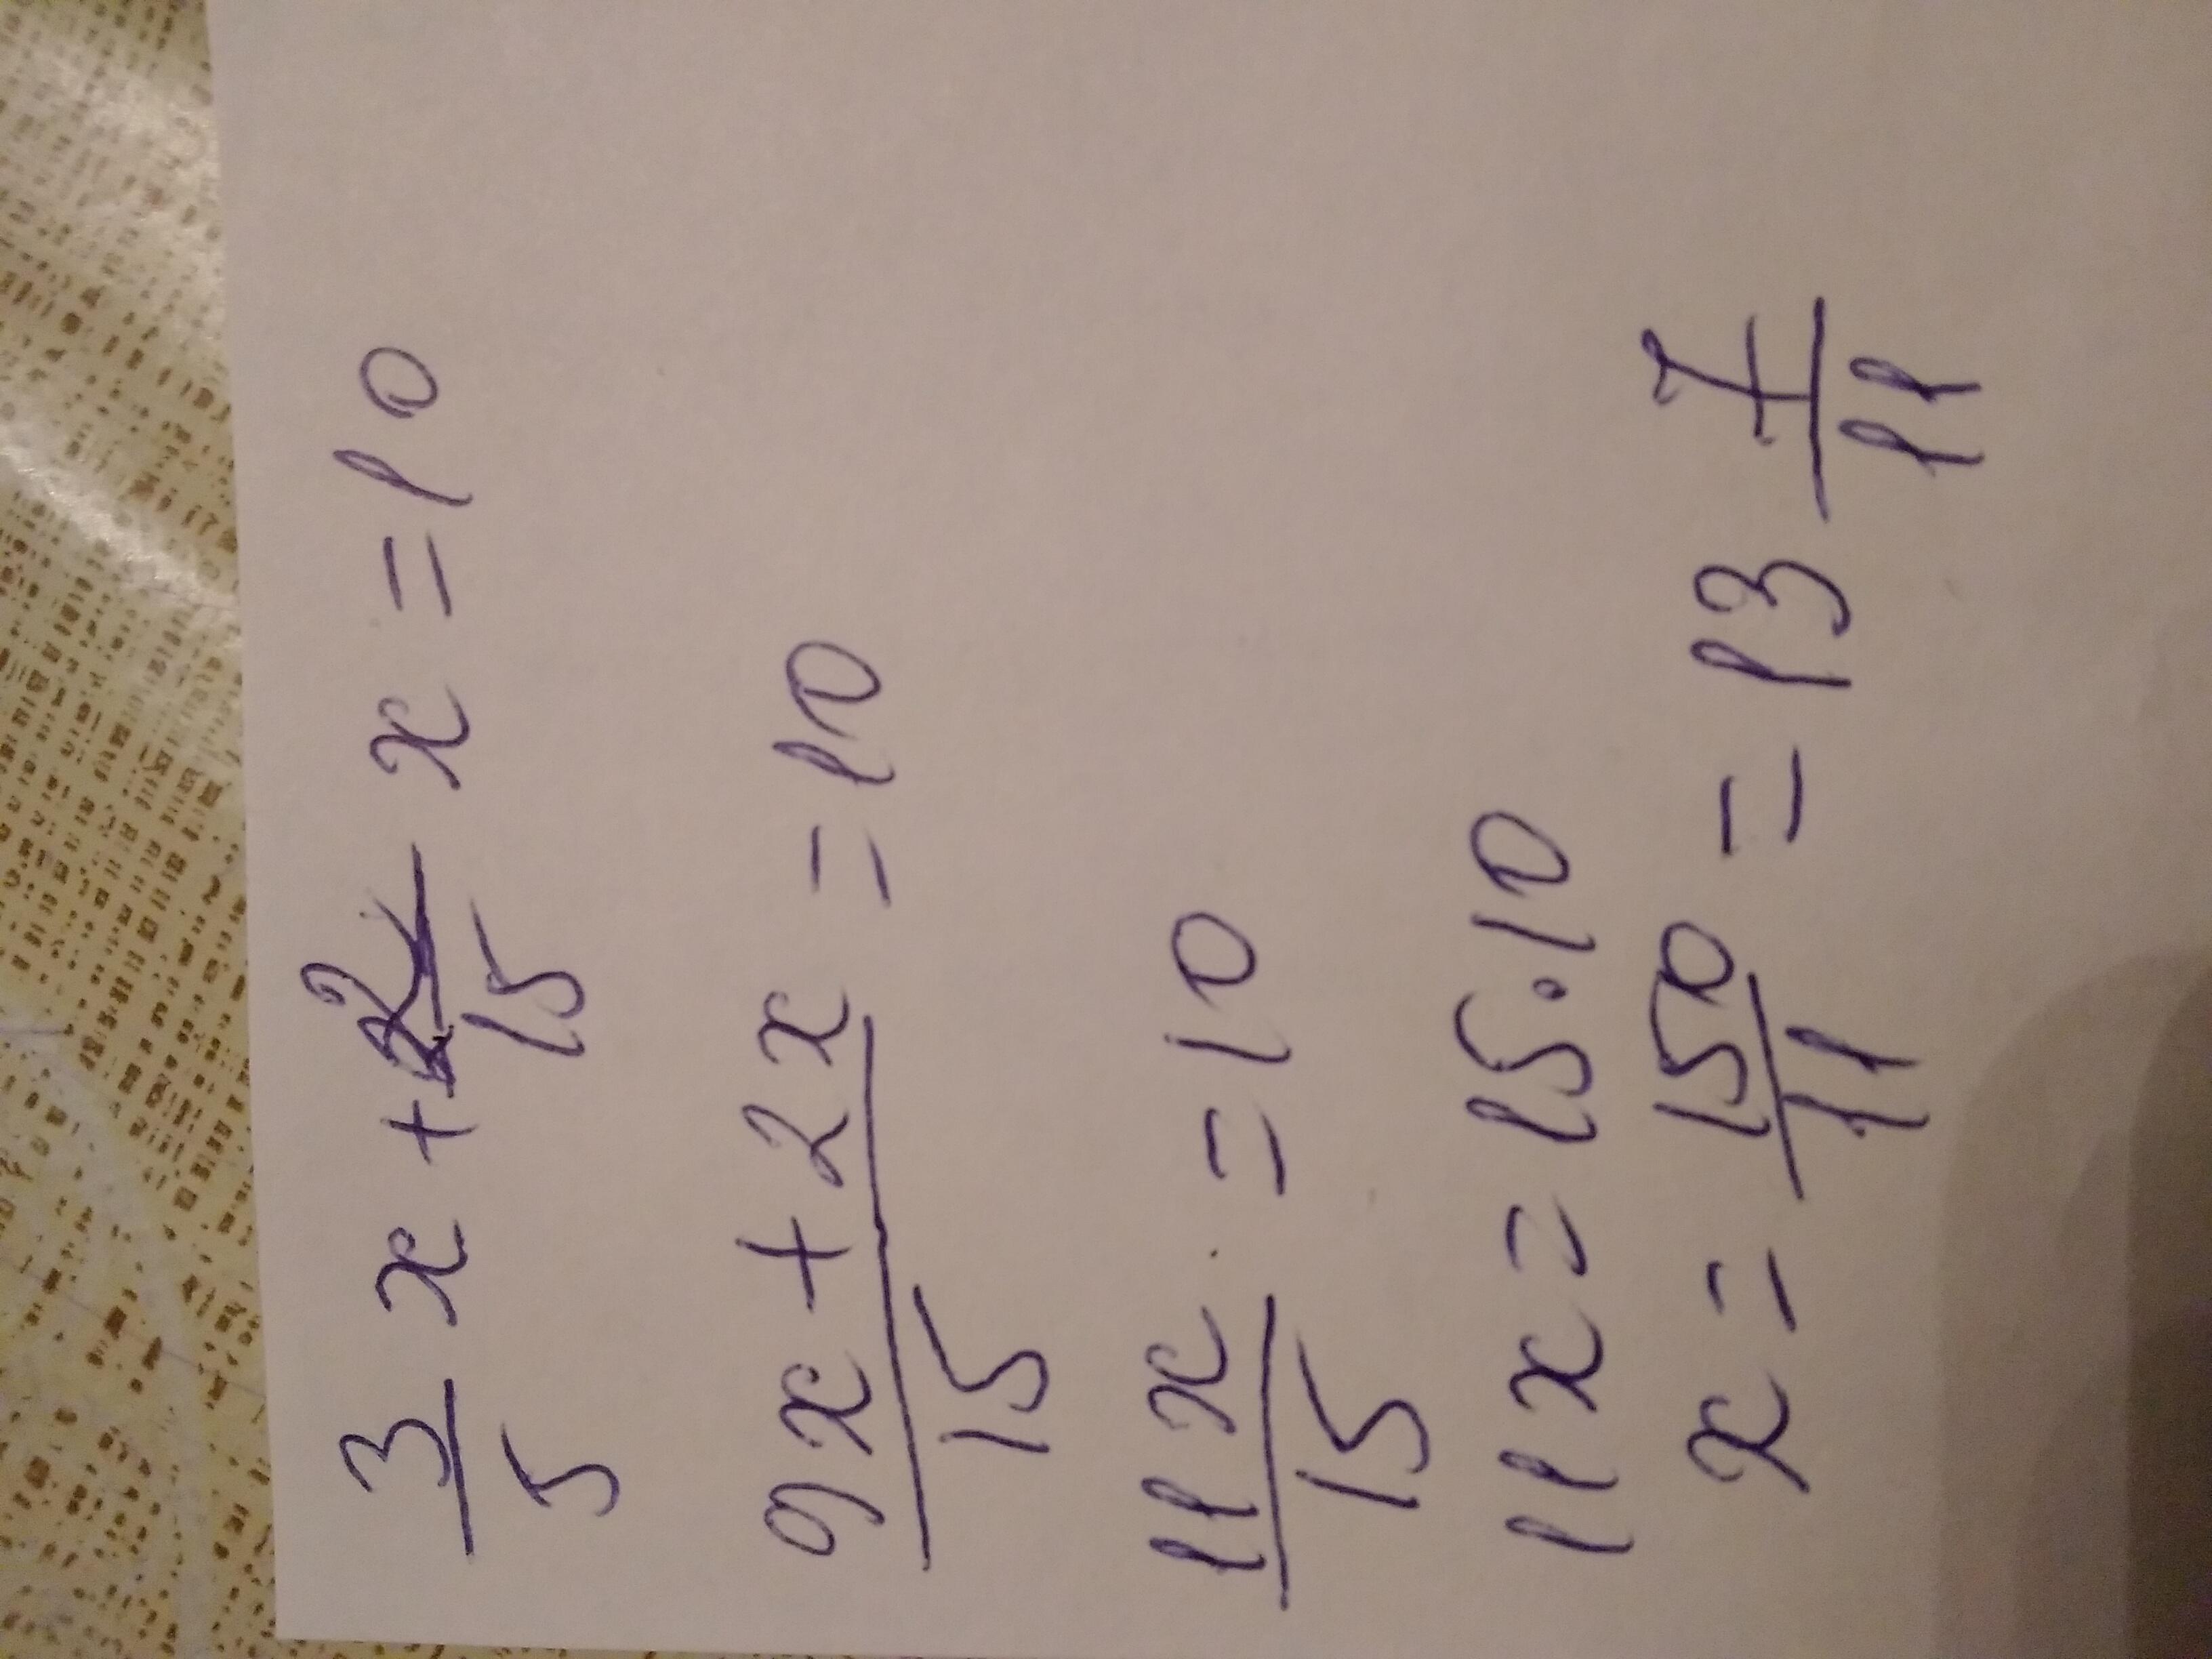 3/5 x + 2/15 x = 10
9x + 2x / 15 = 10
11x / 15 = 10
11x = 15 · 10
x = 150/11 = 13 7/11